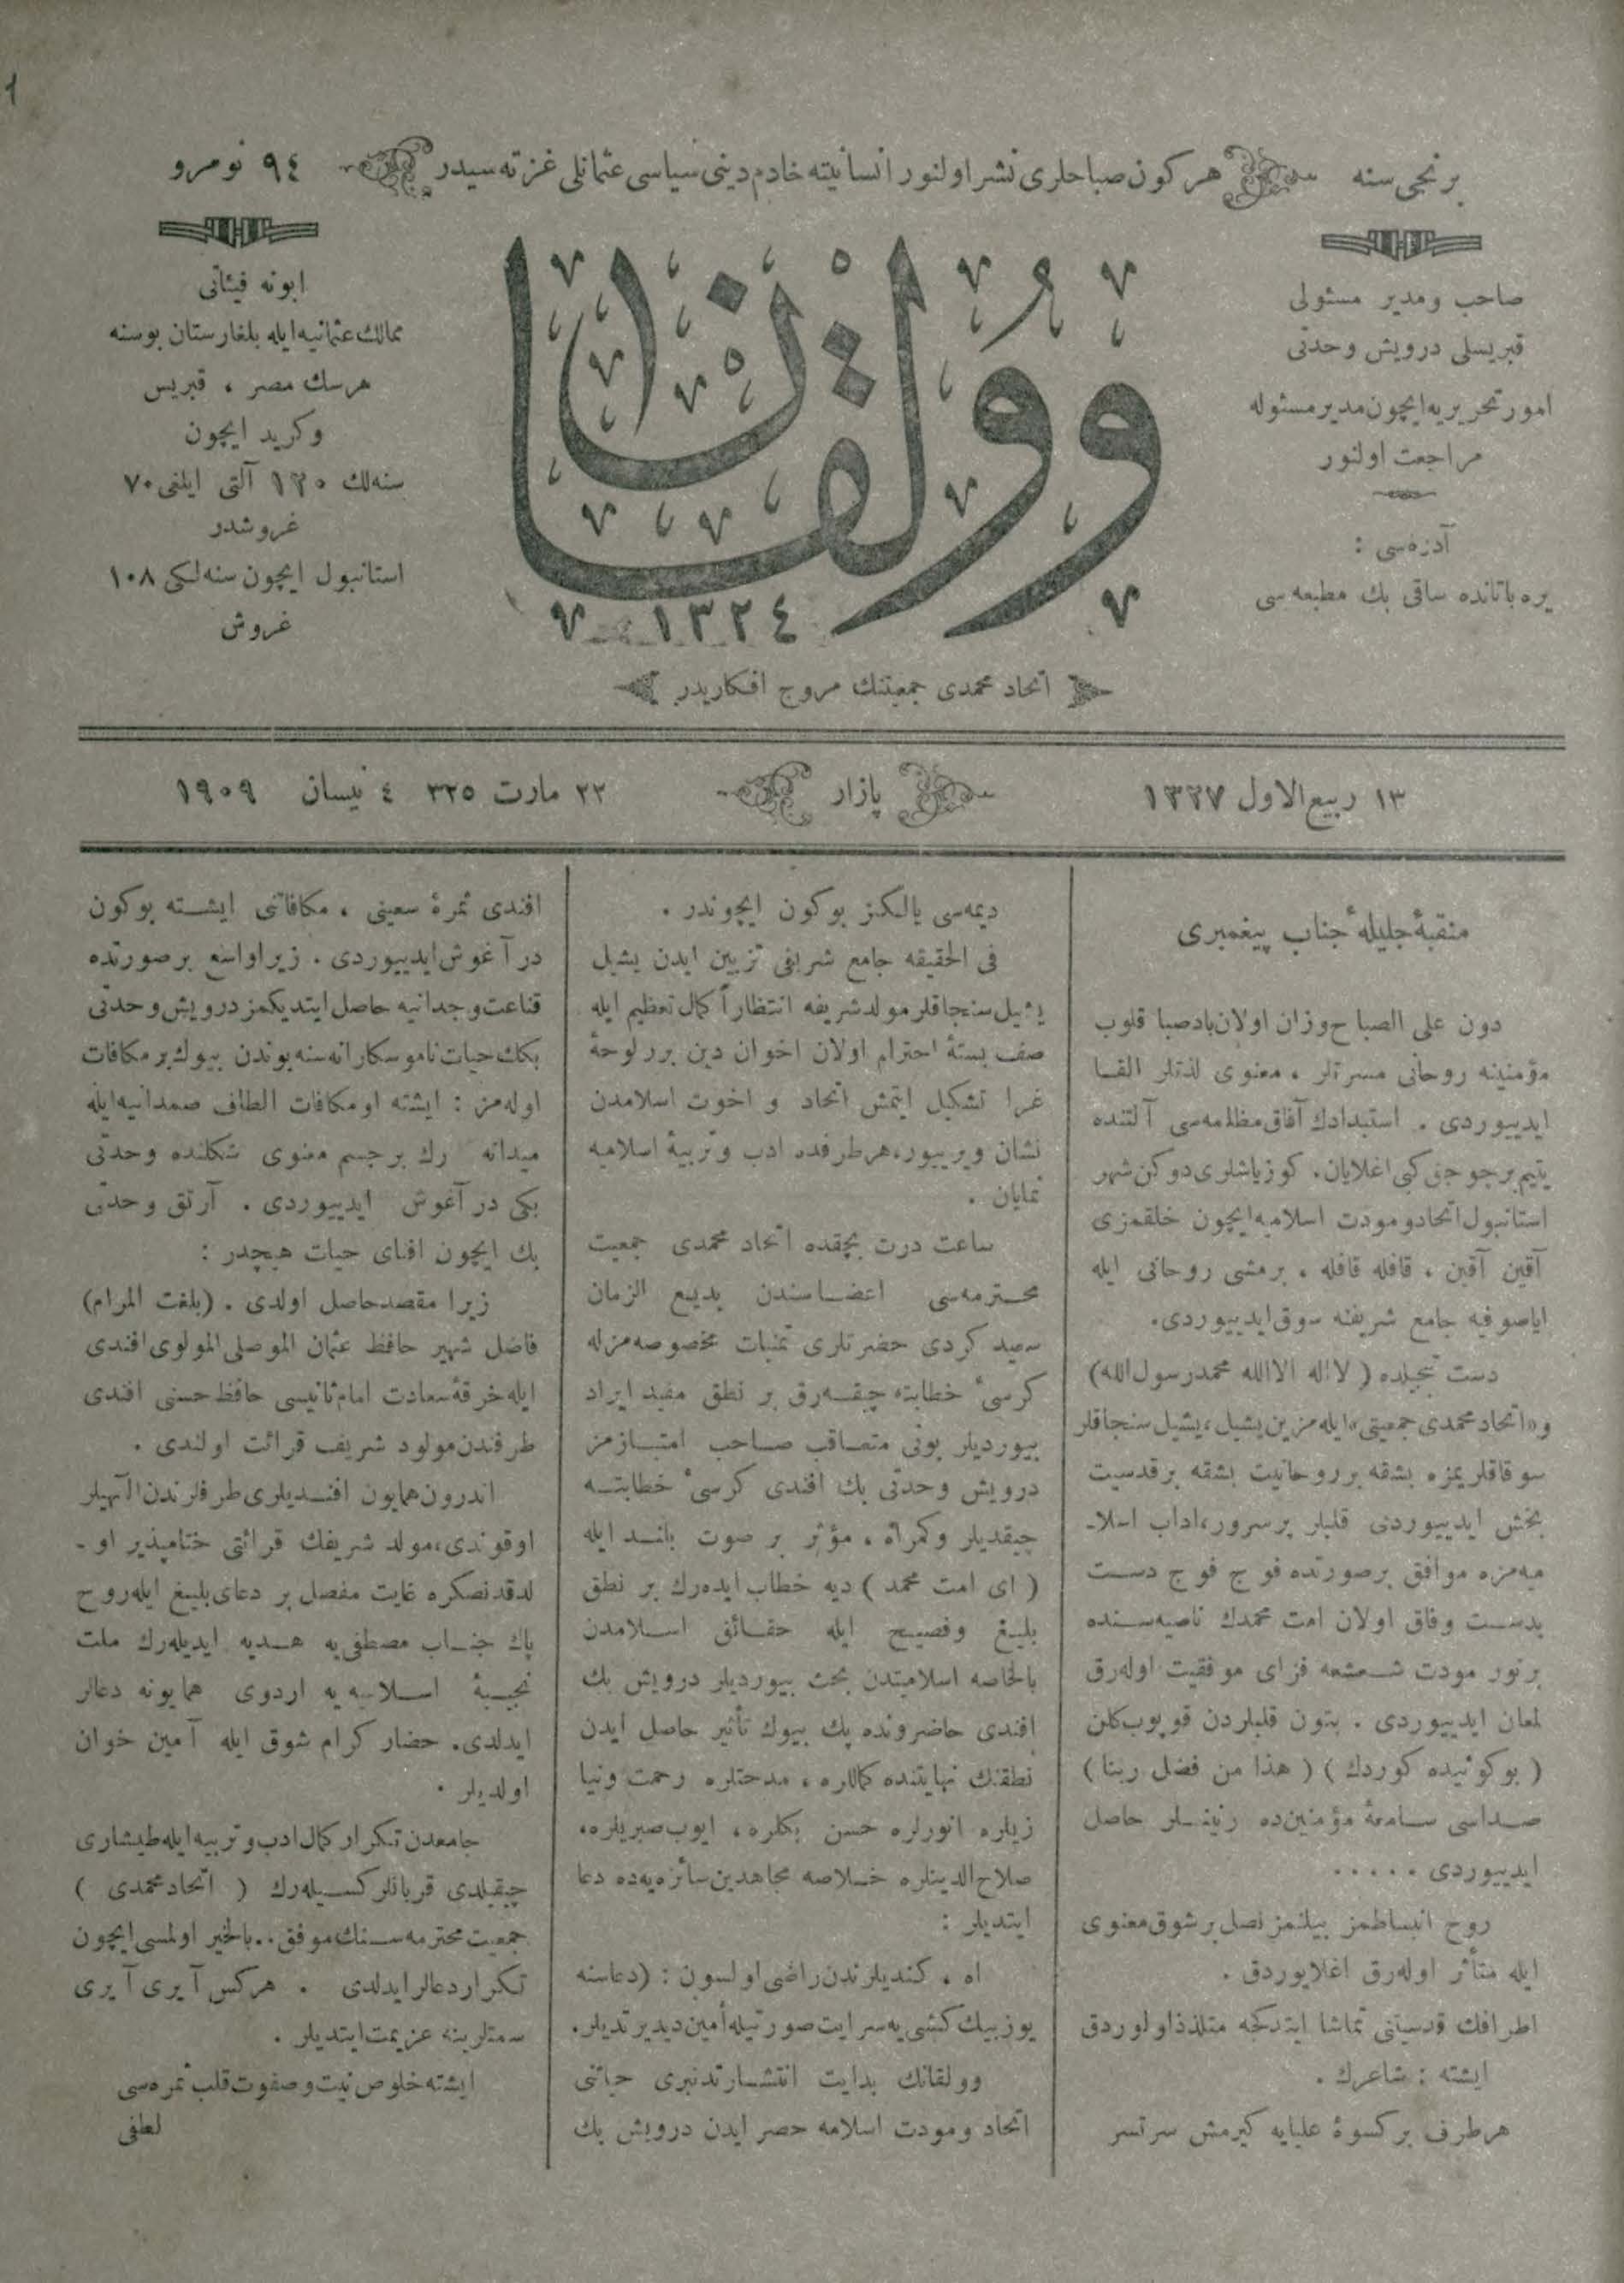 برنجی سنه
هر كون صباحلری نشر اولنور انسانیته خادم دینی سیاسی عثمانلی غزته سیدر
٩٤ نومرو
صاحب و مدیر مسئولی
قبریسلی درویش وحدتی
امور تحریریه ایچون مدیر مسئوله
مراجعت اولنور
آدره سی :
یره باتانده ساقی بك مطبعه سی
وولقان
١٣٢٤
ابونه فیئاتی
ممالك عثمانیه ایله بلغارستان بوسنه
هرسك مصر ، قبریس
وكرید ایچون
سنه لك ١٢٠ آلتی ایلغی ٧٠
غروشدر
استانبول ایچون سنه لكی ١٠٨
غروش
اتحاد محمدی جمعیتنك مروج افكاریدر
١٣ ربیع الاول ١٣٢٧
پازار
٢٢ مارت ٣٢٥ ٤ نیسان ١٩٠٩
منقبۀ جلیلۀ جناب پیغمبری
دون علی الصباح وزان اولان باد صبا قلوب
مؤمنینه روحانی مسرتلر ، معنوی لذتلر القا
ایدییوردی . استبدادك آفاق مظلمه سی آلتنده
یتیم بر چوجق كبی اغلایان. كوز یاشلری دوكن شهر
استانبول اتحاد و مودت اسلامیه ایچون خلقمزی
آقین آقین ، قافله قافله ، بر مشی روحانی ایله
ایاصوفیه جامع شریفنه سوق ایدییوردی.
دست تبجیلده ( لااله الاالله محمدرسول الله)
و «اتحاد محمدی جمعیتی» ایله مزین یشیل ، یشیل سنجاقلر
سوقاقلریمزه بشقه بر روحانیت بشقه بر قدسیت
بخش ایدییوردی قلبلر پرسرور، اداب اسلا-
میه مزه موافق بر صورتده فوج فوج دست
بدست وفاق اولان امت محمدك ناصیه سنده
بر نور مودت شعشعه فزای موفقیت اوله رق
لمعان ایدییوردی . بتون قلبلردن قوپوب كلن
( بوكونیده كوردك ) ( هذا من فضل ربنا )
صداسی سامعۀ مؤمنین ده رنینلر حاصل
ایدییوردی . . . . .
روح انبساطمز بیلنمز نصل بر شوق معنوی
ایله متأثر اوله رق اغلایوردق .
اطرافك قدسیتنی تماشا ایتدكجه متلذذ اولوردق
ایشته : شاعرك .
هر طرف بر كسوۀ علیایه كیرمش سرتسر
دیمه سی یالكز بوكون ایچوندر .
فی الحقیقه جامع شریفی تزیین ایدن یشیل
یشیل سنجاقلر مولد شریفه انتظاراً كمال تعظیم ایله
صف بستۀ احترام اولان اخوان دین برر لوحۀ
غرا تشكیل ایتمش اتحاد و اخوت اسلامدن
نشان ویرییور، هر طرفده ادب و تربیۀ اسلامیه
نمایان .
ساعت درت بچقده اتحاد محمدی جمعیت
محترمه سی اعضاسندن بدیع الزمان
سعید كردی حضرتلری تمنیات مخصوصه مزله
كرسیٔ خطابته چیقه رق بر نطق مفید ایراد
بیوردیلر بونی متعاقب صاحب امتیازمز
درویش وحدتی بك افندی كرسیٔ خطابته
چیقدیلر و ، مؤثر بر صوت بلند ایله
( ای امت محمد ) دیه خطاب ایده رك بر نطق
بلیغ وفصیح ایله حقائق اسلامدن
بالخاصه اسلامیتدن بحث بیوردیلر درویش بك
افندی حاضرونده پك بیوك تأثیر حاصل ایدن
نطقنك نهایتنده كماللره ، مدحتلره رحمت ونیا
زیلره انورلره حسن بكلره ، ایوب صبریلره ،
صلاح الدینلره خلاصه مجاهدین سائره یه ده دعا
ایتدیلر :
اه ، كندیلرندن راضی اولسون : (دعاسنه
یوز بیك كشی یه سرایت صورتیله أمین دیدیرتدیلر.
وولقانك بدایت انتشارندنبری حیاتنی
اتحاد و مودت اسلامه حصر ایدن درویش بك
افندی ثمرۀ سعینی ، مكافاتنی ایشته بوكون
در آغوش ایدییوردی . زیرا واسع بر صورتده
قناعت وجدانیه حاصل ایتدیكمز درویش وحدتی
بكك حیات ناموسكارانه سنه بوندن بیوك بر مكافات
اوله مز : ایشته او مكافات الطاف صمدانیه ایله
میدانه رك بر جسم معنوی شكلنده وحدتی
بكی در آغوش ایدییوردی . آرتق وحدتی
بك ایچون افنای حیات هیچدر :
زیرا مقصد حاصل اولدی . (بلغت المرام)
فاضل شهیر حافظ عثمان الموصلی المولوی افندی
ایله خرقۀ سعادت امام ثانیسی حافظ حسنی افندی
طرفندن مولود شریف قرائت اولندی .
اندرون همایون افندیلری طرفلرندن الٓهیلر
اوقوندی، مولد شریفك قرائتی ختامپذیر او -
لدقدنصكره غایت مفصل بر دعای بلیغ ایله روح
پاك جناب مصطفی یه هدیه ایدیله رك ملت
نجیبۀ اسلامیه یه اردوی همایونه دعالر
ایدلدی. حضار كرام شوق ایله آمین خوان
اولدیلر .
جامعدن تكرار كمال ادب و تربیه ایله طیشاری
چیقیلدی قربانلر كسیله رك ( اتحاد محمدی )
جمعیت محترمه سنك موفق .. بالخیر اولمسی ایچون
تكرار دعالر ایدلدی . هركس آیری آیری
سمتلرینه عزیمت ایتدیلر .
ایشته خلوص نیت و صفوت قلب ثمره سی
لطفی